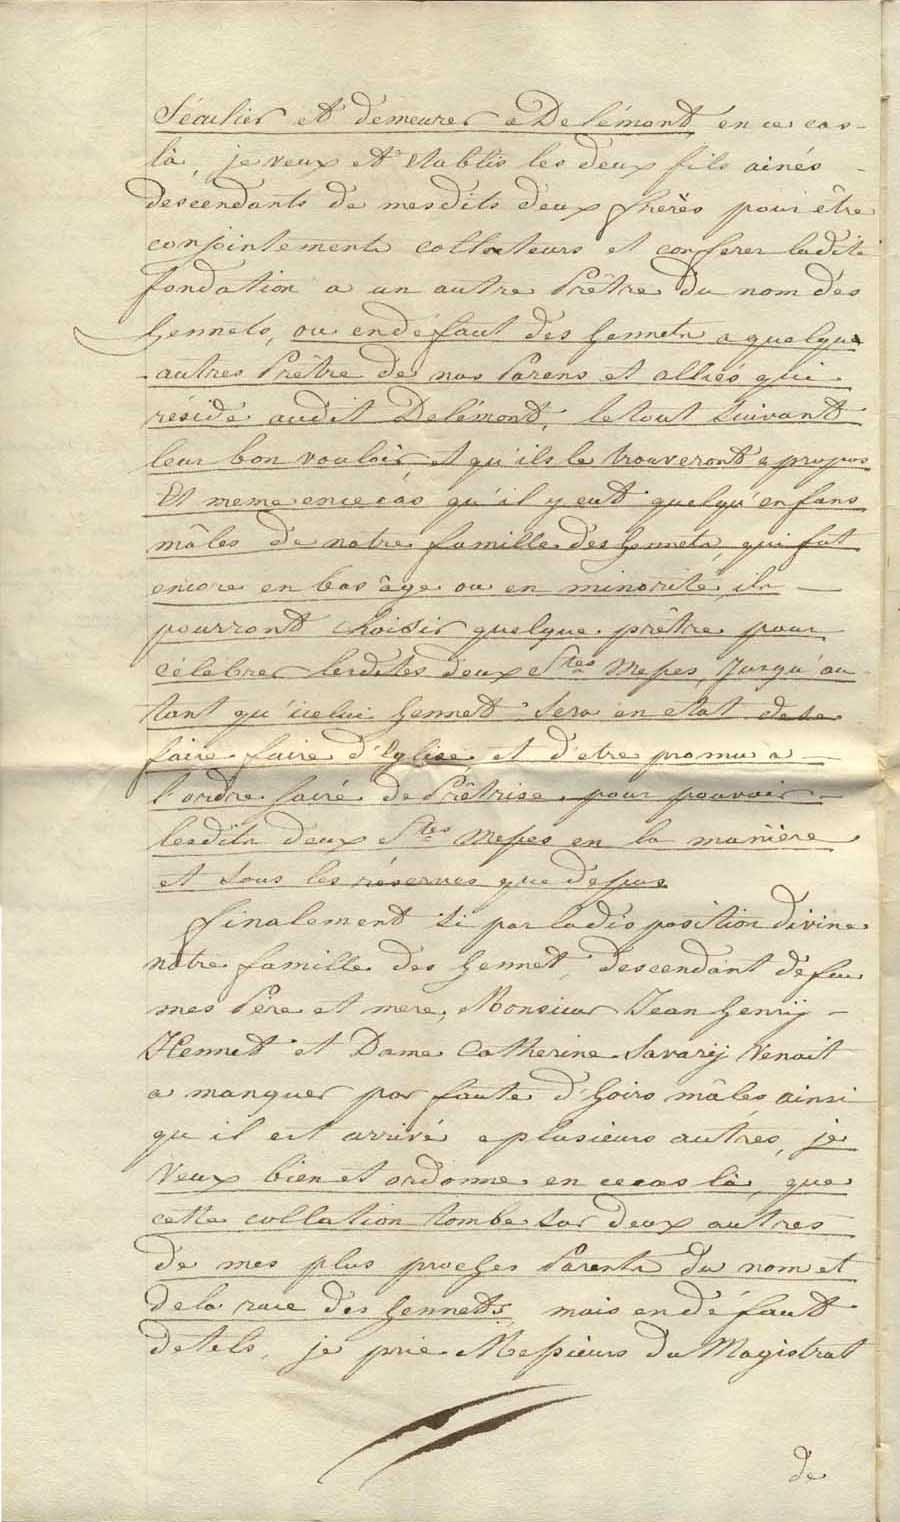 Séculier et demeurer a Delémont, en ce cas-
là, je veux et établis les deux fils ainés
descendants de mesdits deux frères pour être
conjointement collateurs et conferer ladite
fondation a un autre Prêtre du nom des
hennets, ou en défaut des hennets a quelque
autres Prêtre de nos Parens et alliés qui
réside audit Delémont, le tout suivant
leur bon vouloir, et qu'ils le trouveront a propos
Et meme en ce cas qu'il y eut quelqu'enfans
mâles de notre famille des hennets, qui fut
encore en bas âge ou en minorité, ils
pourront choisir quelque prêtre pour
célébrer lesdites deux Stes Messes, Jusqu'au
tant qu'icelui hennet sera en etat de se
faire faire d'Eglise, et d'etre promu a
l'ordre sacré de Prêtrise, pour pouvoir
lesdits deux Stes Messes en la manière
et sous les réserves que dessus
finalement si par la disposition divine
notre famille des hennet, descendant de feu
mes Père et mere, Monsieur Jean henrij
Hennet et Dame Catherine Savarij Venait
a manquer par faute d'hoirs mâles, ainsi
qu'il est arrivé a plusieurs autres, je
veux bien et ordonne en ce cas là, que
cette collation tombe sur deux autres
de mes plus proches Parents du nom et
de la race des hennets, mais en défaut
de tels, je prie Messieurs du Magistrat
de